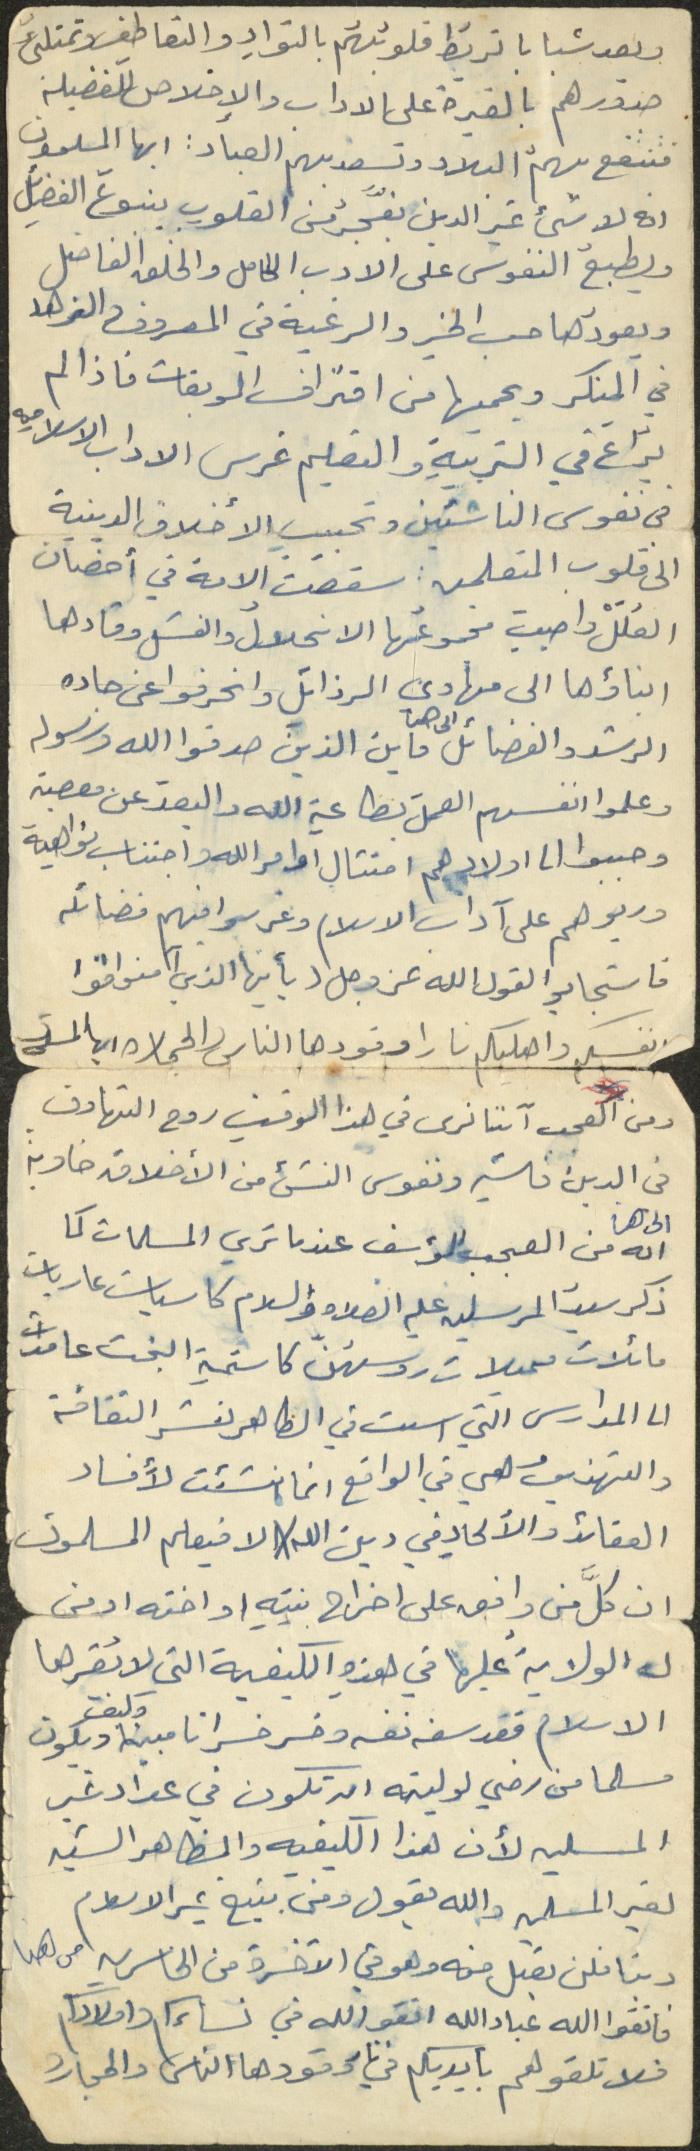 وبعد شبابا تربط قلوبهم بالتوادد والتعاطف وتمتلئ
صدورهم بالغيرة على الاداب والإخلاص للفضيلة
فتنتفع بهم البلاد وتسعد بهم العباد : ايها المسلمون
انه لا شئ غير الدين يفجر من القلوب ينبوع الفضائل
ويطبع النفوس على الادب الكامل والخلق الفاضل
ويعودها حب الخير والرغبة في المعروف والزهد
في المنكر ويحميها من اقتراف الموبقات فاذا لم
يراع في التربية والتعليم غرس الاداب الاسلامية
في نفوس الناشئين وتحبيب الأخلاق الدينية
الى قلوب المتعلمين : سقطت الامة في أحضان
العلل واصيب مجموعها الانحلال والفشل وقادها
ابناؤها الى مهاوي الرذائل وانحرفوا عن جاده
الرشد والفضائل الى هنا فأين الذين صدقوا الله ورسوله
وعلموا انفسهم العمل بطاعة الله والبعد عن معصيته
وحببوا الى اولادهم امتثال اوامر الله واجتناب نواهيه
وربوهم على آداب الاسلام وغرسوا فيهم فضائله
فاستجابوا لقول الله عز وجل ( يأيها الذين آمنوا قوا
انفسكم واهليكم نارا وقودها الناس والحجارة ) ايها المسلمون
ومن العجب آننا نرى في هذا الوقت روح التهاون
في الدين فاشيه ونفوس النشئ من الأخلاق خاوية
الى هنا
انه من العجب المؤسف عندما نرى المسلمات كما
ذكر سيد المرسلين عليه الصلاة والسلام كاسيات عاريات
مائلات مميلات رؤسهن كاسنمة البخت عامدات
الى المدارس التي اسست في الظاهر لنشر الثقافة
والتهذيب وهي في الواقع انما انشئت لأفساد
العقائد والألحاد في دين الله الا فيعلم المسلمون
ان كل من وافق على اخراج بنته او اخته او من
له الولاية عليها في هذه الكيفية التى لا يقرها
الاسلام فقد سفه نفسه وخسر خسرانا مبينا وكيف ويكون
مسلما من رضي لوليته ان تكون في عداد غير
المسلمين لأن هذا الكيفيه والمظاهر السيئه
لغير المسلمين والله يقول ومن يبتغ غير الاسلام
دينا فلن يقبل منه وهو في الآخرة من الخاسرين من هنا
فاتقوا الله عباد الله اتقوا الله في نساءكم واولادكم
فلا تلقوهم بأيديكم في نار وقودها الناس والحجارة